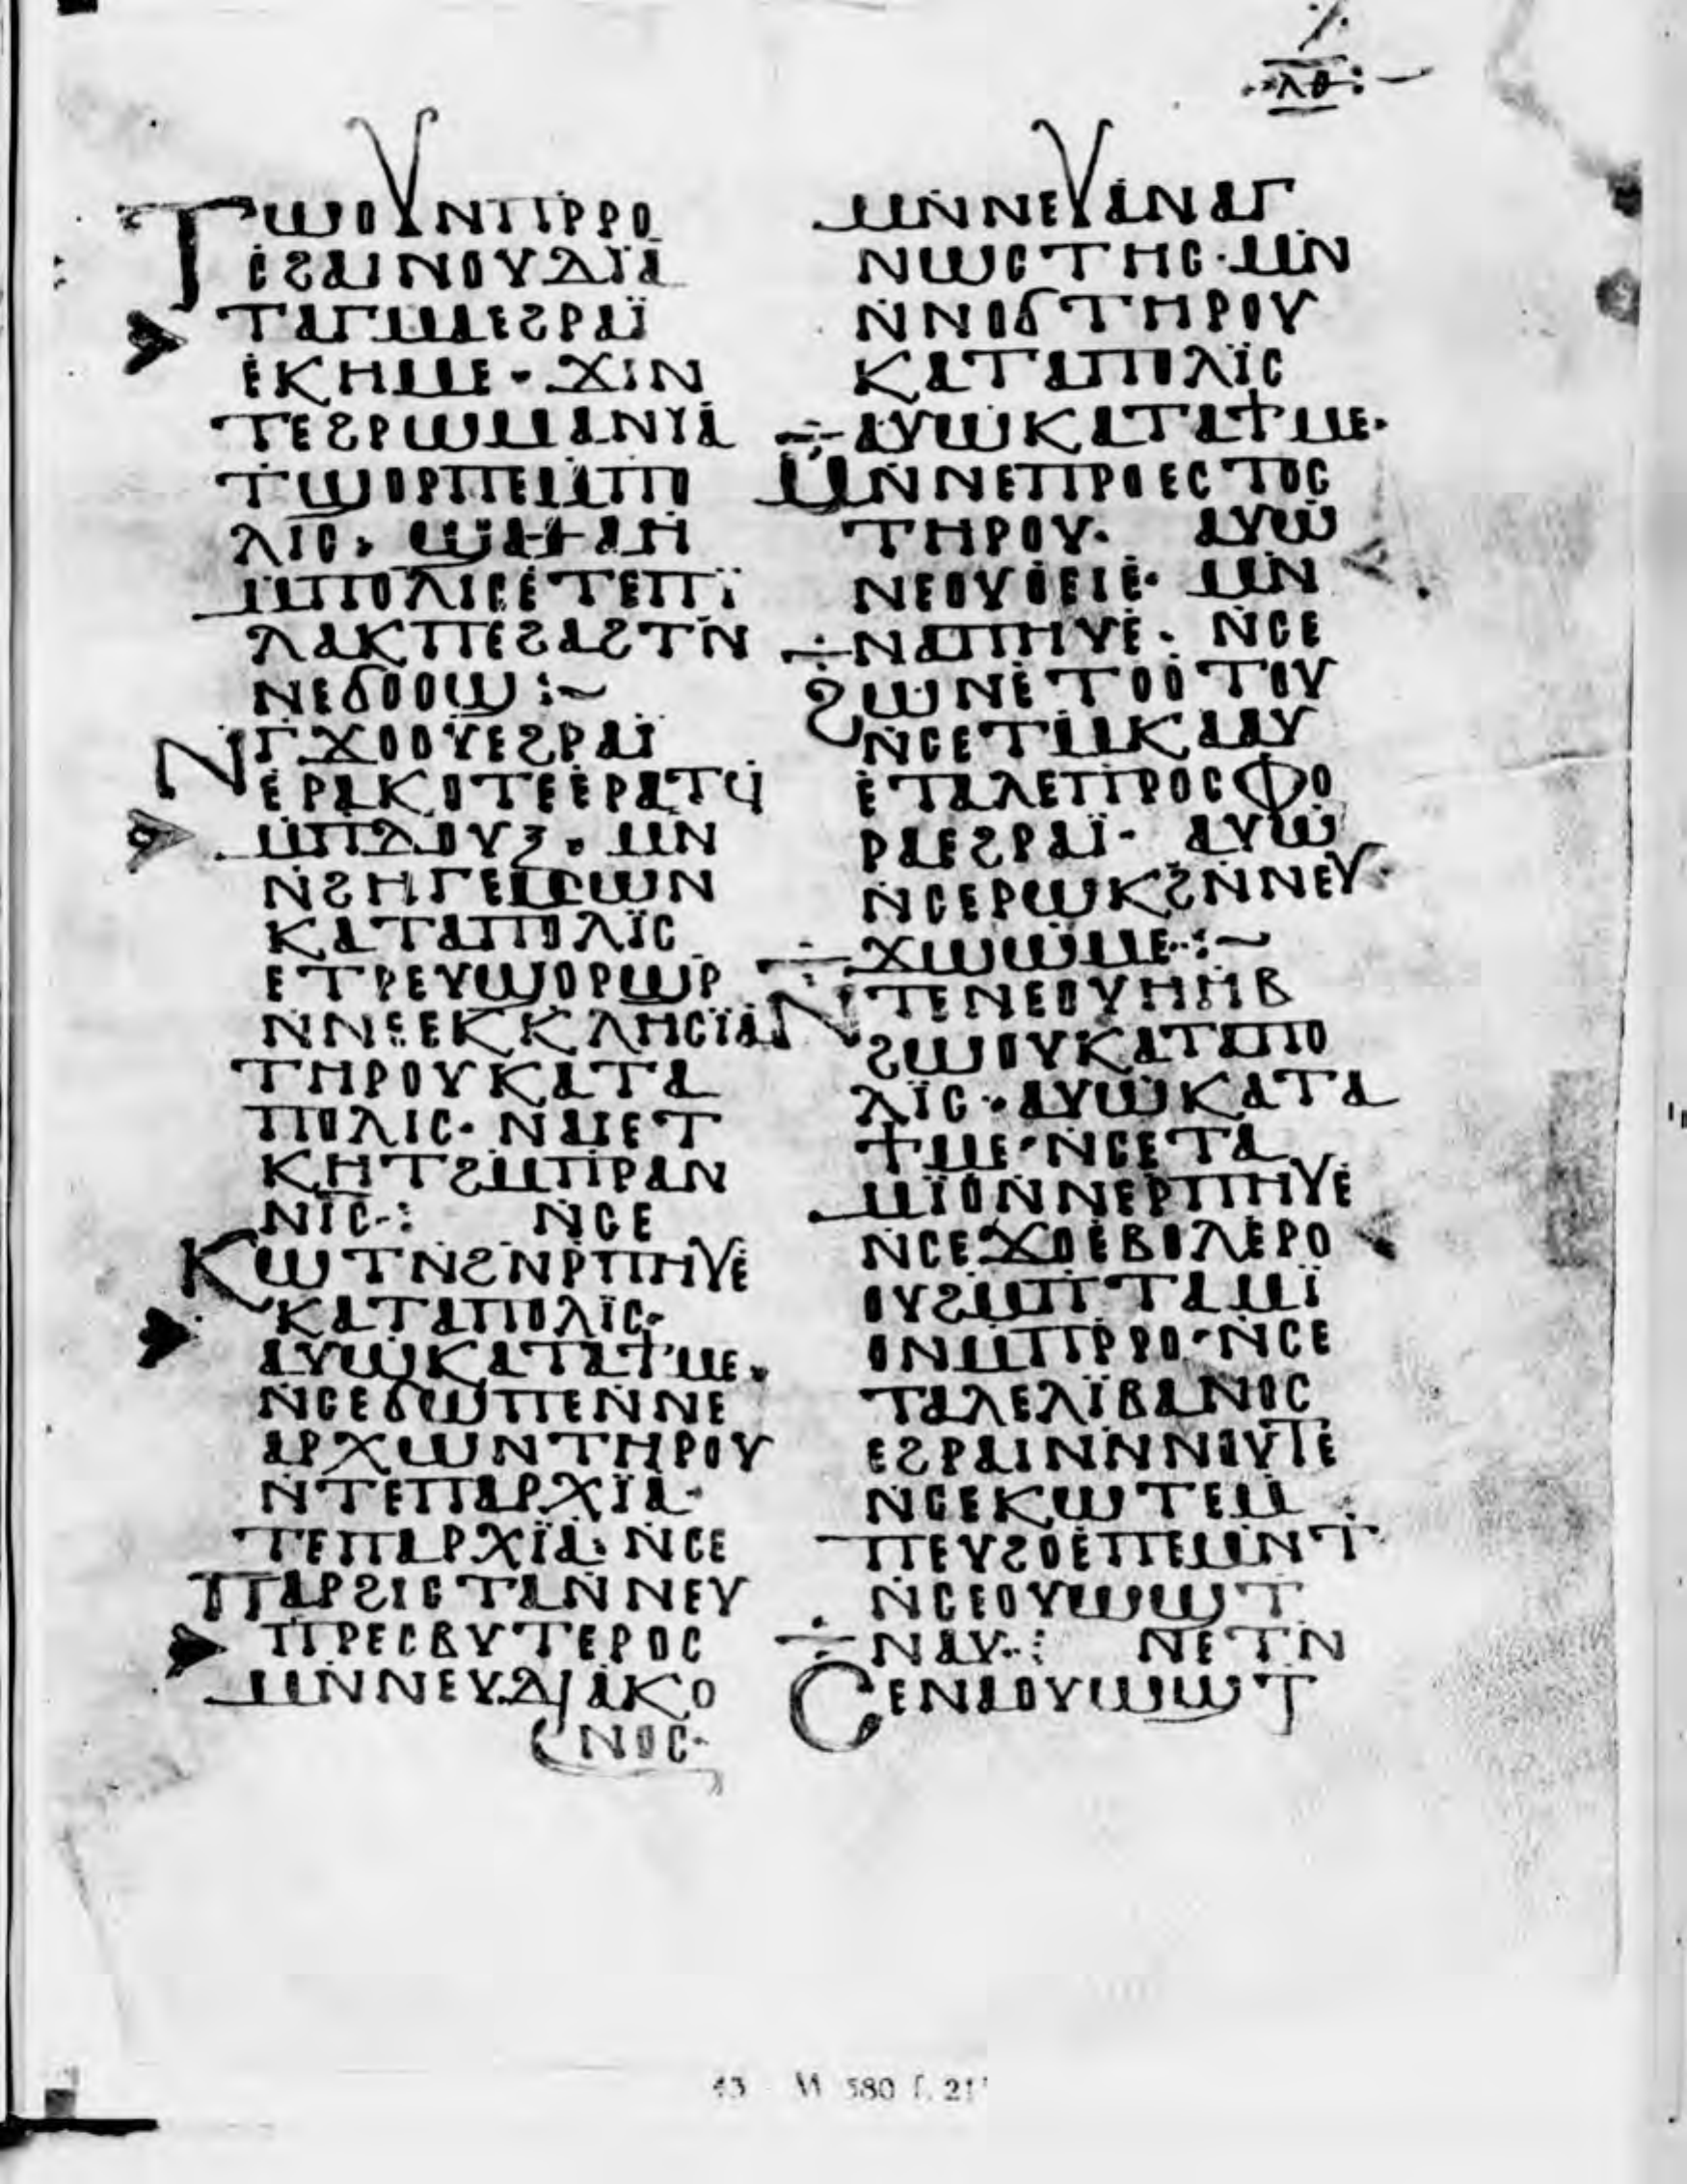 ⲗⲑ
ⲧⲱⲟⲩⲛⲡⲣⲣⲟ
ⲥϩⲁⲓⲛⲟⲩⲇⲓ̈ⲁ
ⲧⲁⲅⲙⲁⲉϩⲣⲁⲓ̈
ⲉⲕⲏⲙⲉ· ϫⲓⲛ
ⲧⲉϩⲣⲱⲙⲁⲛⲓ̈ⲁ
ⲧϣⲟⲣⲡⲉⲙⲡⲟ
ⲗⲓⲥ· ϣⲁϯⲁⲏ
ⲙⲡⲟⲗⲓⲥⲉⲧⲉⲡⲓ̈
ⲗⲁⲕⲡⲉϩⲁϩⲧⲛ̇
ⲛⲉϭⲟⲟϣ:~
ⲛⲅϫⲟⲟⲩⲉϩⲣⲁⲓ̈
ⲉⲣⲁⲕⲟⲧⲉⲉⲣⲁⲧϥ
ⲙ̇ⲡⲇⲟⲩⲝ· ⲙⲛ
ⲛ̇ϩⲏⲅⲉⲙⲱⲛ
ⲕⲁⲧⲁⲡⲟⲗⲓ̈ⲥ
ⲉⲧⲣⲉⲩϣⲟⲣϣⲣ
ⲛ̇ⲛⲉⲉⲕⲕⲗⲏⲥⲓ̈ⲁ
ⲧⲏⲣⲟⲩⲕⲁⲧⲁ
ⲡⲟⲗⲓⲥ· ⲛⲁⲓⲉⲧ
ⲕⲏⲧϩⲙⲡⲣⲁⲛ
ⲛⲓ̅ⲥ̅·: ⲛ̇ⲥⲉ
ⲕⲱⲧⲛ̇ϩⲛ̇ⲣⲡⲏⲩⲉ̇
ⲕⲁⲧⲁⲡⲟⲗⲓ̈ⲥ·
ⲁⲩⲱⲕⲁⲧⲁϯⲙⲉ·
ⲛ̇ⲥⲉϭⲱⲡⲉⲛ̇ⲛⲉ
ⲁⲣⲭⲱⲛⲧⲏⲣⲟⲩ
ⲛ̇ⲧⲉⲡⲁⲣⲭⲓ̈ⲁ·
ⲧⲉⲡⲁⲣⲭⲓ̈ⲁ· ⲛ̇ⲥⲉ
ⲡⲁⲣϩⲓⲥⲧⲁⲛ̇ⲛⲉⲩ
ⲡⲣⲉⲥⲃⲩⲧⲉⲣⲟⲥ
ⲙⲛ̇ⲛⲉⲩⲇⲓⲁⲕⲟ
ⲛⲟⲥ·
ⲙⲛ̇ⲛⲉⲩⲁⲛⲁⲅ
ⲛⲱⲥⲧⲏⲥ· ⲙⲛ̇
ⲛ̇ⲛⲟϭⲧⲏⲣⲟⲩ
ⲕⲁⲧⲁⲡⲟⲗⲓ̈ⲥ
ⲁⲩⲱⲕⲁⲧⲁϯⲙⲉ·
ⲙⲛ̇ⲛⲉⲡⲣⲟⲉⲥⲧⲟⲥ
ⲧⲏⲣⲟⲩ· ⲁⲩⲱ
ⲛⲉⲟⲩⲟⲉⲓⲉ· ⲙⲛ
ⲛⲁⲡⲏⲩⲉ̇· ⲛ̇ⲥⲉ
ϩⲱⲛⲉ̇ⲧⲟⲟⲧⲟⲩ
ⲛ̇ⲥⲉⲧⲙⲕⲁⲁⲩ
ⲉ̇ⲧⲁⲗⲉⲡⲣⲟⲥⲫⲟ
ⲣⲁⲉϩⲣⲁⲓ̈· ⲁⲩⲱ
ⲛ̇ⲥⲉⲣⲱⲕϩⲛ̇ⲛⲉⲩ·
ϫⲱⲱⲙⲉ·:~
ⲛ̇ⲧⲉⲛⲉⲟⲩⲏⲏⲃ
ϩⲱⲟⲩⲕⲁⲧⲁⲡⲟ
ⲗⲓ̈ⲥ· ⲁⲩⲱⲕⲁⲧⲁ
ϯⲙⲉ· ⲛ̇ⲥⲉⲧⲁ
ⲙⲓ̈ⲟⲛ̇ⲛⲉⲣⲡⲏⲩⲉ̇
ⲛ̇ⲥⲉϫⲟⲉ̇ⲃⲟⲗⲉ̇ⲣⲟ
ⲟⲩϩⲙⲡⲧⲁⲙⲓ̈
ⲟⲛⲙⲡⲣⲣⲟ· ⲛ̇ⲥⲉ
ⲧⲁⲗⲉⲗⲓ̈ⲃⲁⲛⲟⲥ
ⲉϩⲣⲁⲓⲛ̇ⲛ̇ⲛⲟⲩⲧⲉ̇
ⲛ̇ⲥⲉⲕⲱⲧⲉⲙ
ⲡⲉⲩϩⲟⲉ̇ⲡⲉⲙⲛ̇ⲧ
ⲛ̇ⲥⲉⲟⲩⲱϣⲧ
ⲛⲁⲩ·: ⲛⲉⲧⲛ
ⲥⲉⲛⲁⲟⲩⲱϣⲧ
43 M 580 f. 21